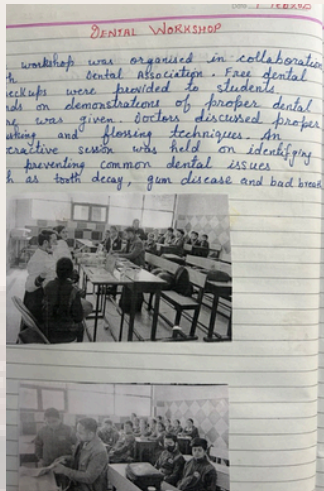 DENTAL WORKSHOP
workshop was organised in collaboration
Dental Association. Free dental
were provided to students.
on demonstrations of proper dental
was given. Doctors discussed proper
and flossing techniques. An
session was held on identifying
preventing common dental issues
as tooth decay, gum disease and bad breath